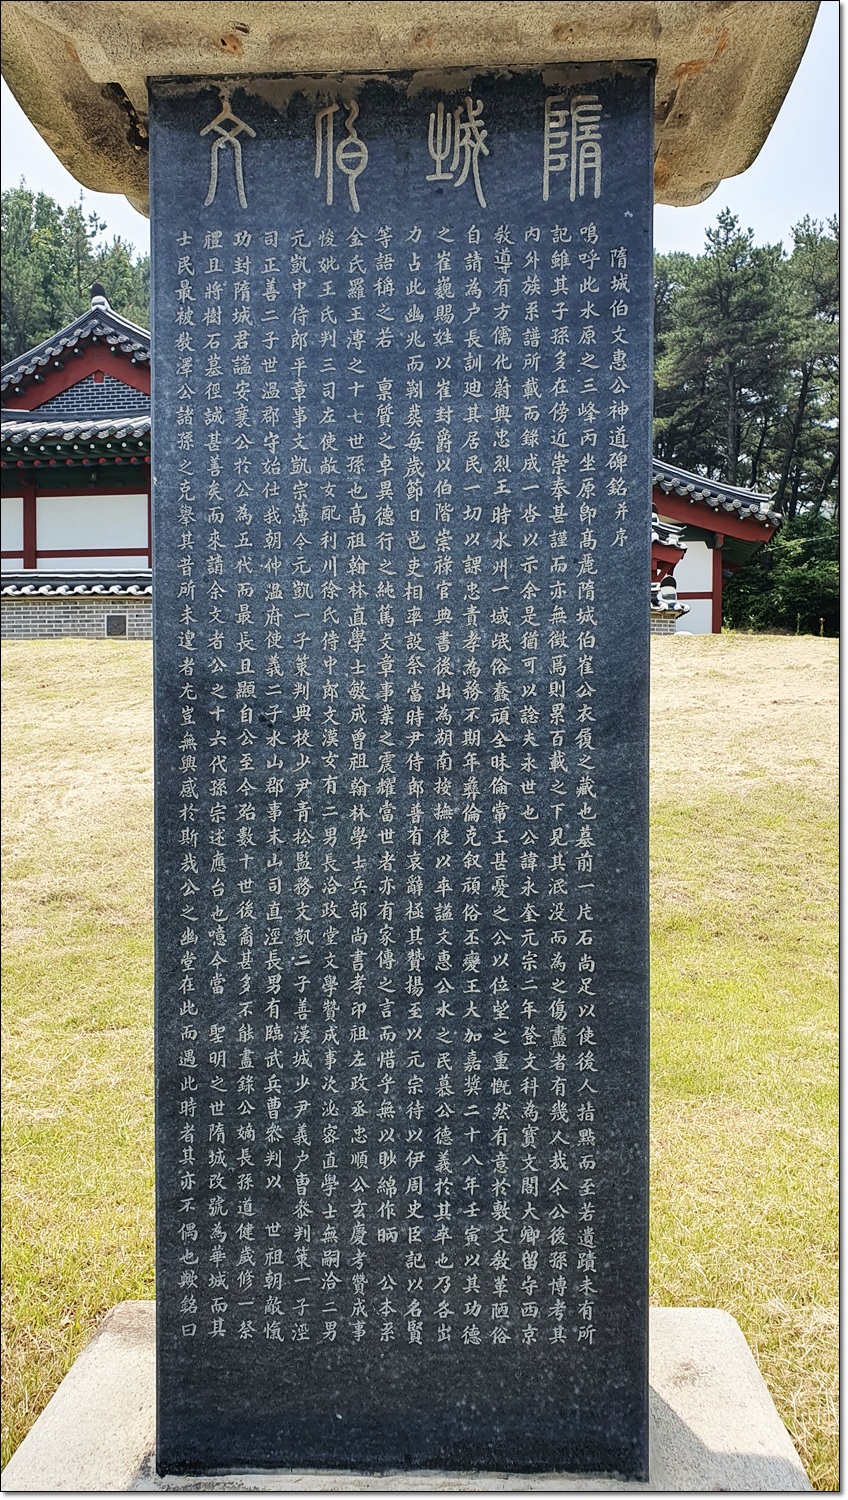 隋城伯文
隋城伯文惠公神道碑銘并序
嗚呼此水原之三峰丙坐原卽髙麗隋城伯崔公衣履之藏也墓前一片石尚足以使後人指點而至若遺蹟未有所
記雖其子孫多在傍近崇奉甚謹而亦無徵焉則累百載之下見其泯没而為之傷盡者有幾人哉今公後孫博考其
内外族系譜所載而錄成一沓以示余是猶可以諗夫永世也公諱永奎元宗二年登文科為寳文閣大卿留守西京
敎導有方儒化蔚興忠烈王時水州一域氓俗蠢頑全昧倫常王甚憂之公以位望之重慨然有意於敷文敎革陋俗
自請為户長訓迪其居民一切以課忠責孝為務不期年彝倫克叙頑俗丕變王大加嘉奬二十八年壬寅以其功德
之崔巍賜姓以崔封爵以伯階崇祿官典書後出為湖南按撫使以卒謚文惠公水之民慕公德義於其卒也乃各出
力占此幽兆而剏葬每歲節日邑吏相率設祭當時尹侍郎普有哀辭極其贊揚至以元宗待以伊周史臣記以名賢
等語稱之若 稟質之卓異德行之純篤文章事業之震耀當世者亦有家傳之言而惜乎無以眇綿作昞 公本系
金氏羅王漙之十七世孫也髙祖翰林直學士敏成曾祖翰林學士兵部尚書孝印祖左政丞忠順公玄慶考贊成事
悛妣王氏判三司左使敵女配利川徐氏侍中郎文漢女有二男長洽政堂文學贊成事次泌宻直學士無嗣洽二男
元凱中侍郎平章事文凱宗薄令元凱一子策判典校少尹青松監務文凱二子善漢城少尹義户曹叅判策一子涇
司正善二子世温郡守始仕我朝仲温府使義二子水山郡事末山司直涇長男有臨武兵曹叅判以 世祖朝敵愾
功封隋城君謚安襄公於公為五代而最長且顯自公至今殆數十世後裔甚多不能盡錄公嫡長孫道健歲修一祭
禮且將樹石墓徑誠甚善矣而來請余文者公之十六代孫宗述應台也噫今當 聖明之世隋城改號為華城而其
士民最被敎澤公諸孫之克擧其昔所未遑者尤豈無興感於斯哉公之幽堂在此而遇此時者其亦不偶也歟銘曰